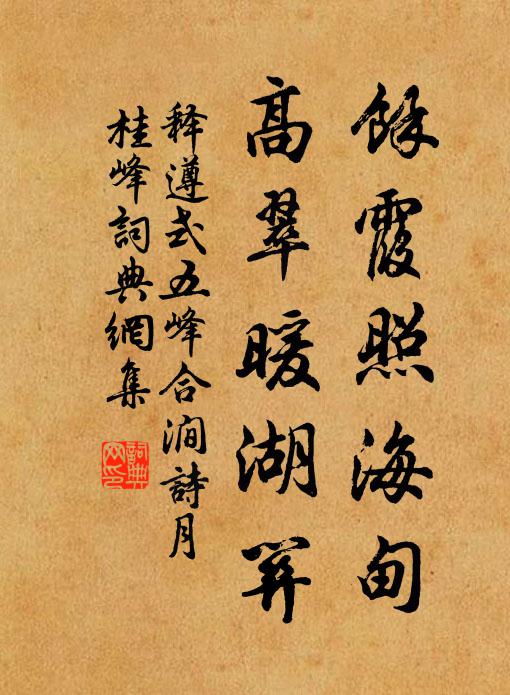 餘霞照海甸
高翠暖湖㫁
释遵式五峰合澗詩月
桂峰詞典網集
詞典